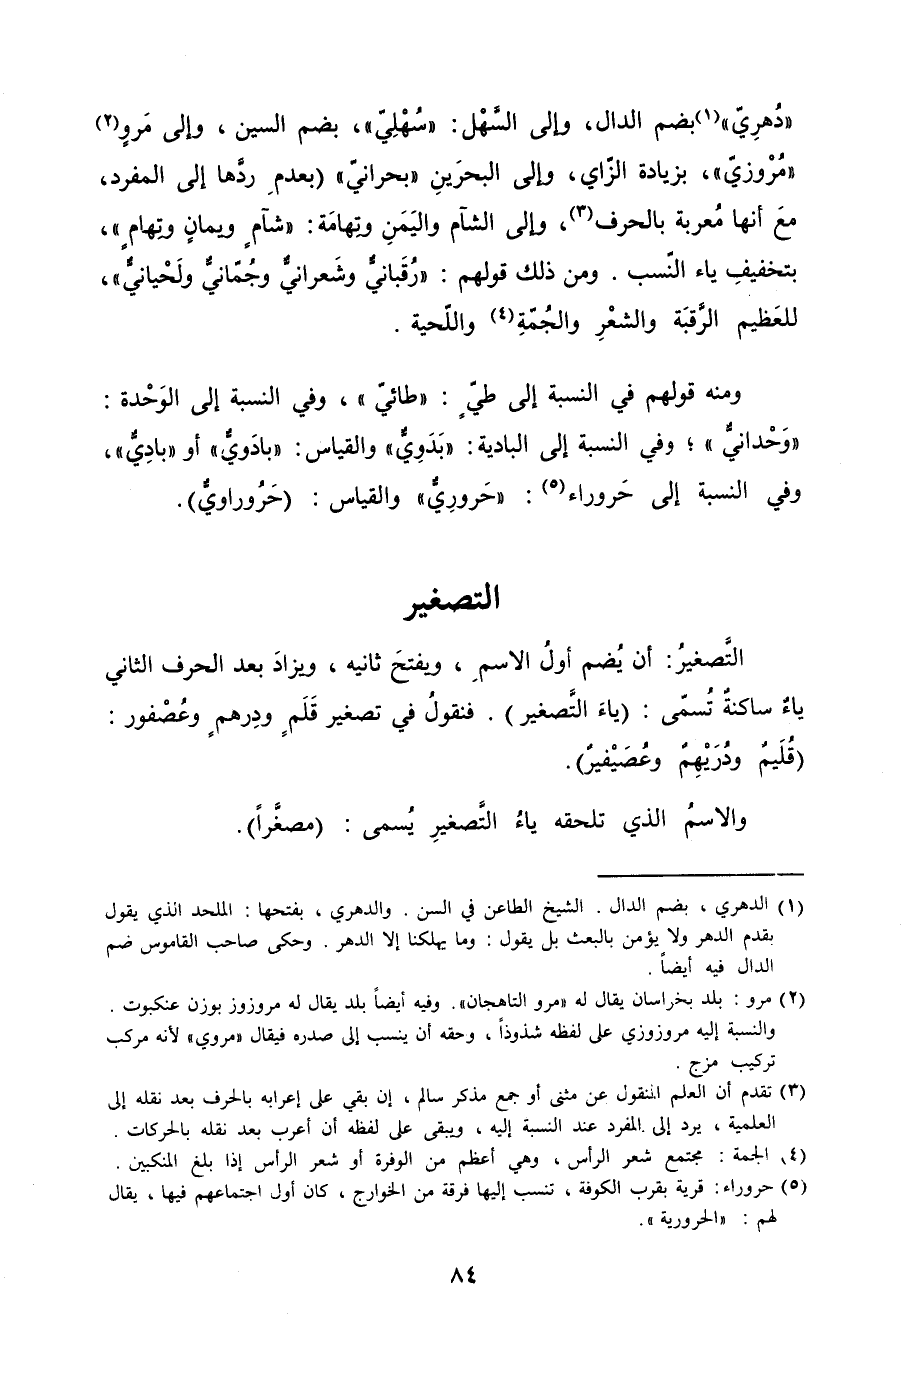 «دُهرِيّ»(١) بضم الدال، وإلى السَّهْل: «سُهْلِيّ»، بضم السين ، وإلى مَروٍ(٢)
«مُرْوزيّ»، بزيادة الزّاي، وإلى البحرَينِ «بحرانيّ» (بعدمِ ردَّها إلى المفرد،
معَ أنها مُعربة بالحرف(٣)، وإلى الشآم واليَمَنِ وتِهامَة: «شآمٍ ويمانٍ وتِهامٍ»،
بتخفيفِ ياء النّسب . ومن ذلك قولهم : «رُقَبانيٌّ وشَعرانيٌّ وجُمّانيٌّ ولَحْيانيٌّ»،
للعَظيم الرَّقبَة والشعْرِ والجُمّةِ(٤) واللّحية .
ومنه قولهم في النسبة إلى طيّ ٍ : «طائيّ» ، وفي النسبة إلى الوَحْدة :
«وَحْدانيٌّ» ؛ وفي النسبة إلى البادية: «بَدَوِيٌّ» والقياس: «بادَويٌّ» أو «بادِيٌّ»،
وفي النسبة إلى حَروراء(٥) : «حَرورِيٌّ» والقياس : (حَرُوراويٌّ).
التصغير
التَّصغيرُ: أن يُضم أولُ الاسمِ ، ويفتحَ ثانيه ، ويزادَ بعد الحرف الثاني
ياءٌ ساكنةٌ تُسمّى : (ياءَ التَّصغير) . فنقولُ في تصغير قَلَمٍ ودِرهمٍ وعُصْفور :
(قُلَيمٌ ودُرَيْهِمٌ وعُصَيْفيرٌ).
والاسمُ الذي تلحقه ياءُ التَّصغيرِ يُسمى : (مصغَّراً).
(١) الدهري ، بضم الدال . الشيخ الطاعن في السن . والدهري ، بفتحها : الملحد الذي يقول
بقدم الدهر ولا يؤمن بالبعث بل يقول : وما يهلكنا إلا الدهر . وحكى صاحب القاموس ضم
الدال فيه أيضاً .
(٢) مرو : بلد بخراسان يقال له «مرو التاهجان». وفيه أيضاً بلد يقال له مروزوز بوزن عنكبوت .
والنسبة إليه مروزوزي على لفظه شذوذاً ، وحقه أن ينسب إلى صدره فيقال «مروي» لأنه مركب
تركيب مزج .
(٣) تقدم أن العلم المنقول عن مثنى أو جمع مذكر سالم ، إن بقي على إعرابه بالحرف بعد نقله إلى
العلمية ، يرد إلى المفرد عند النسبة إليه ، ويبقى على لفظه أن أعرب بعد نقله بالحركات .
(٤) الجمة : مجتمع شعر الرأس ، وهي أعظم من الوفرة أو شعر الرأس إذا بلغ المنكبين .
(٥) حروراء: قرية بقرب الكوفة ، تنسب إليها فرقة من الخوارج ، كان أول اجتماعهم فيها ، يقال
لهم : «الحرورية».
٨٤